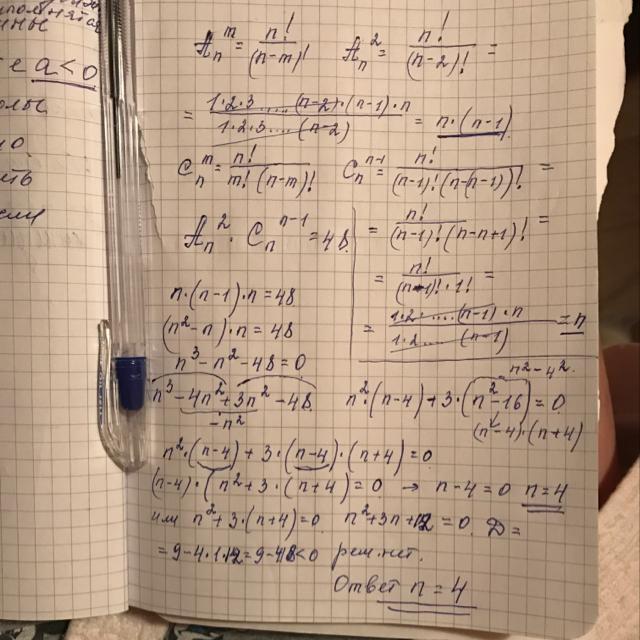 a<0
A_n^m = n!/(n-m)!   A_n^2 = n!/(n-2)! =
= 1·2·3.....(n-2)·(n-1)·n / 1·2·3....(n-2) = n·(n-1)
C_n^m = n!/m!(n-m)!   C_n^{n-1} = n!/(n-1)!(n-(n-1))! =
A_n^2 · C_n^{n-1} = 48
= n!/(n-1)!(n-n+1)! =
= n!/(n-1)!·1! =
= 1·2.....(n-1)·n / 1·2.....(n-1) = n
n·(n-1)·n=48
(n²-n)·n=48
n³-n²-48=0
n³-4n²+3n²-48
-n²
n²-4²
n²·(n-4)+3·(n²-16)=0
(n-4)·(n+4)
n²·(n-4)+3·(n-4)·(n+4)=0
(n-4)·(n²+3·(n+4)=0 → n-4=0 n=4
или n²+3·(n+4)=0 n²+3n+12=0. D=
=9-4·1·12=9-48<0 реш. нет.
Ответ n=4